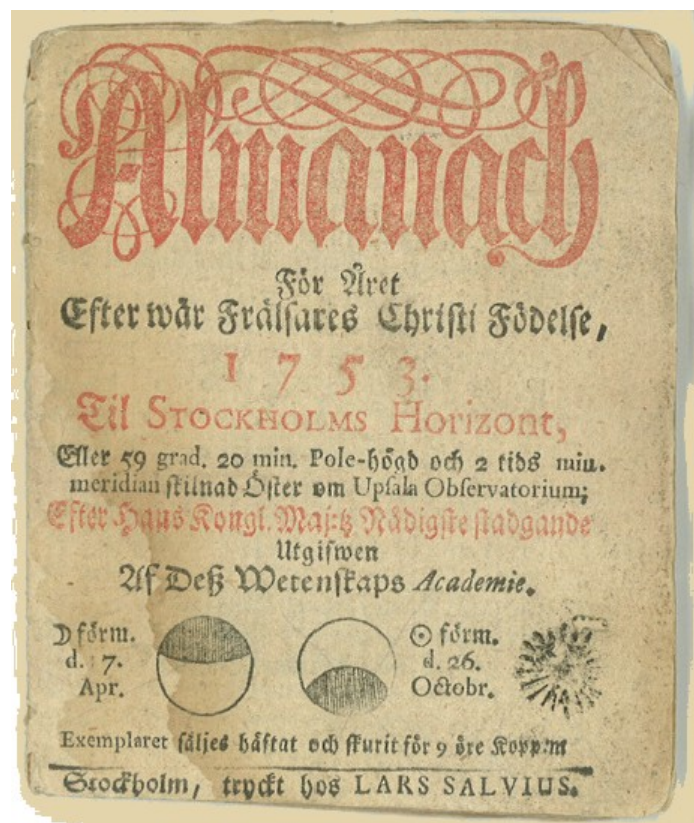 Almanach
För Året
Efter wår Frälsares Christi Födelse,
1753.
Til STOCKHOLMS Horizont,
Eller 59 grad. 20 min. Pole-högd och 2 tids min.
meridian skilnad Öster om Upsala Observatorium;
Efter Hans Kongl. Maj:tz Nådigste stadgande
Utgifwen
Af Deß Wetenskaps Academie.
☽ förm. d. 7. Apr.
☉ förm. d. 26. Octobr.
Exemplaret säljes häftat och skurit för 9 öre Kopp:m
Stockholm, tryckt hos LARS SALVIUS.